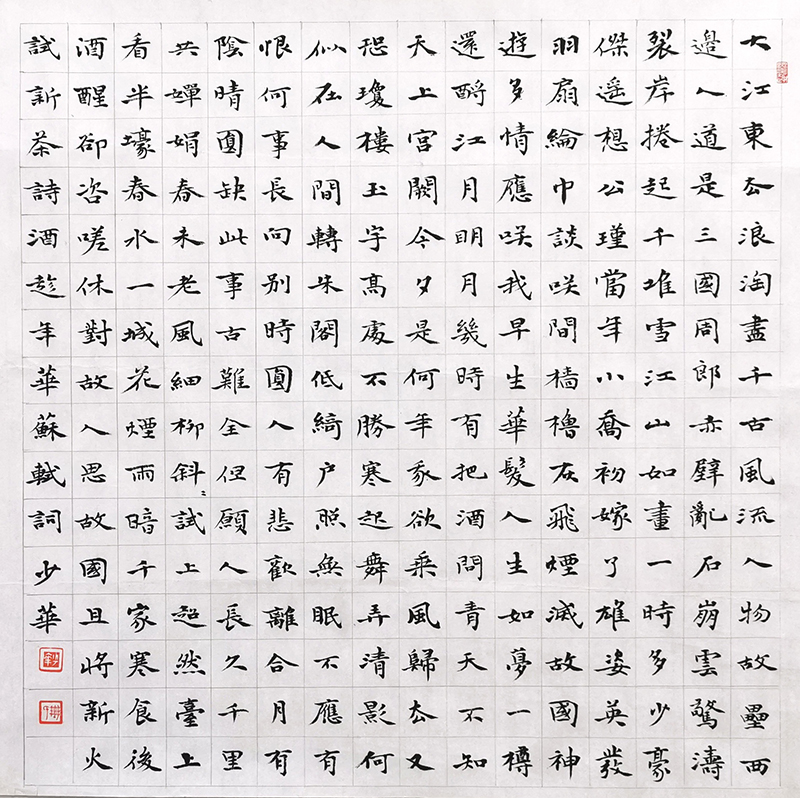 大江東去浪淘盡千古風流人物故壘西
邊人道是三國周郎赤壁亂石崩雲驚濤
裂岸捲起千堆雪江山如畫一時多少豪
傑遙想公瑾當年小喬初嫁了雄姿英發
羽扇綸巾談咲間檣櫓灰飛煙滅故國神
遊多情應咲我早生華髮人生如夢一樽
還酹江月明月幾時有把酒問青天不知
天上宮闕今夕是何年我欲乘風歸去又
恐瓊樓玉宇高處不勝寒起舞弄清影何
似在人間轉朱閣低綺户照無眠不應有
恨何事長向別時圓人有悲歡離合月有
陰晴圓缺此事古難全但願人長久千里
共嬋娟春未老風細柳斜〻試上超然臺上
看半壕春水一城花煙雨暗千家寒食後
酒醒卻咨嗟休對故人思故國且將新火
試新茶詩酒趁年華蘇軾詞少華